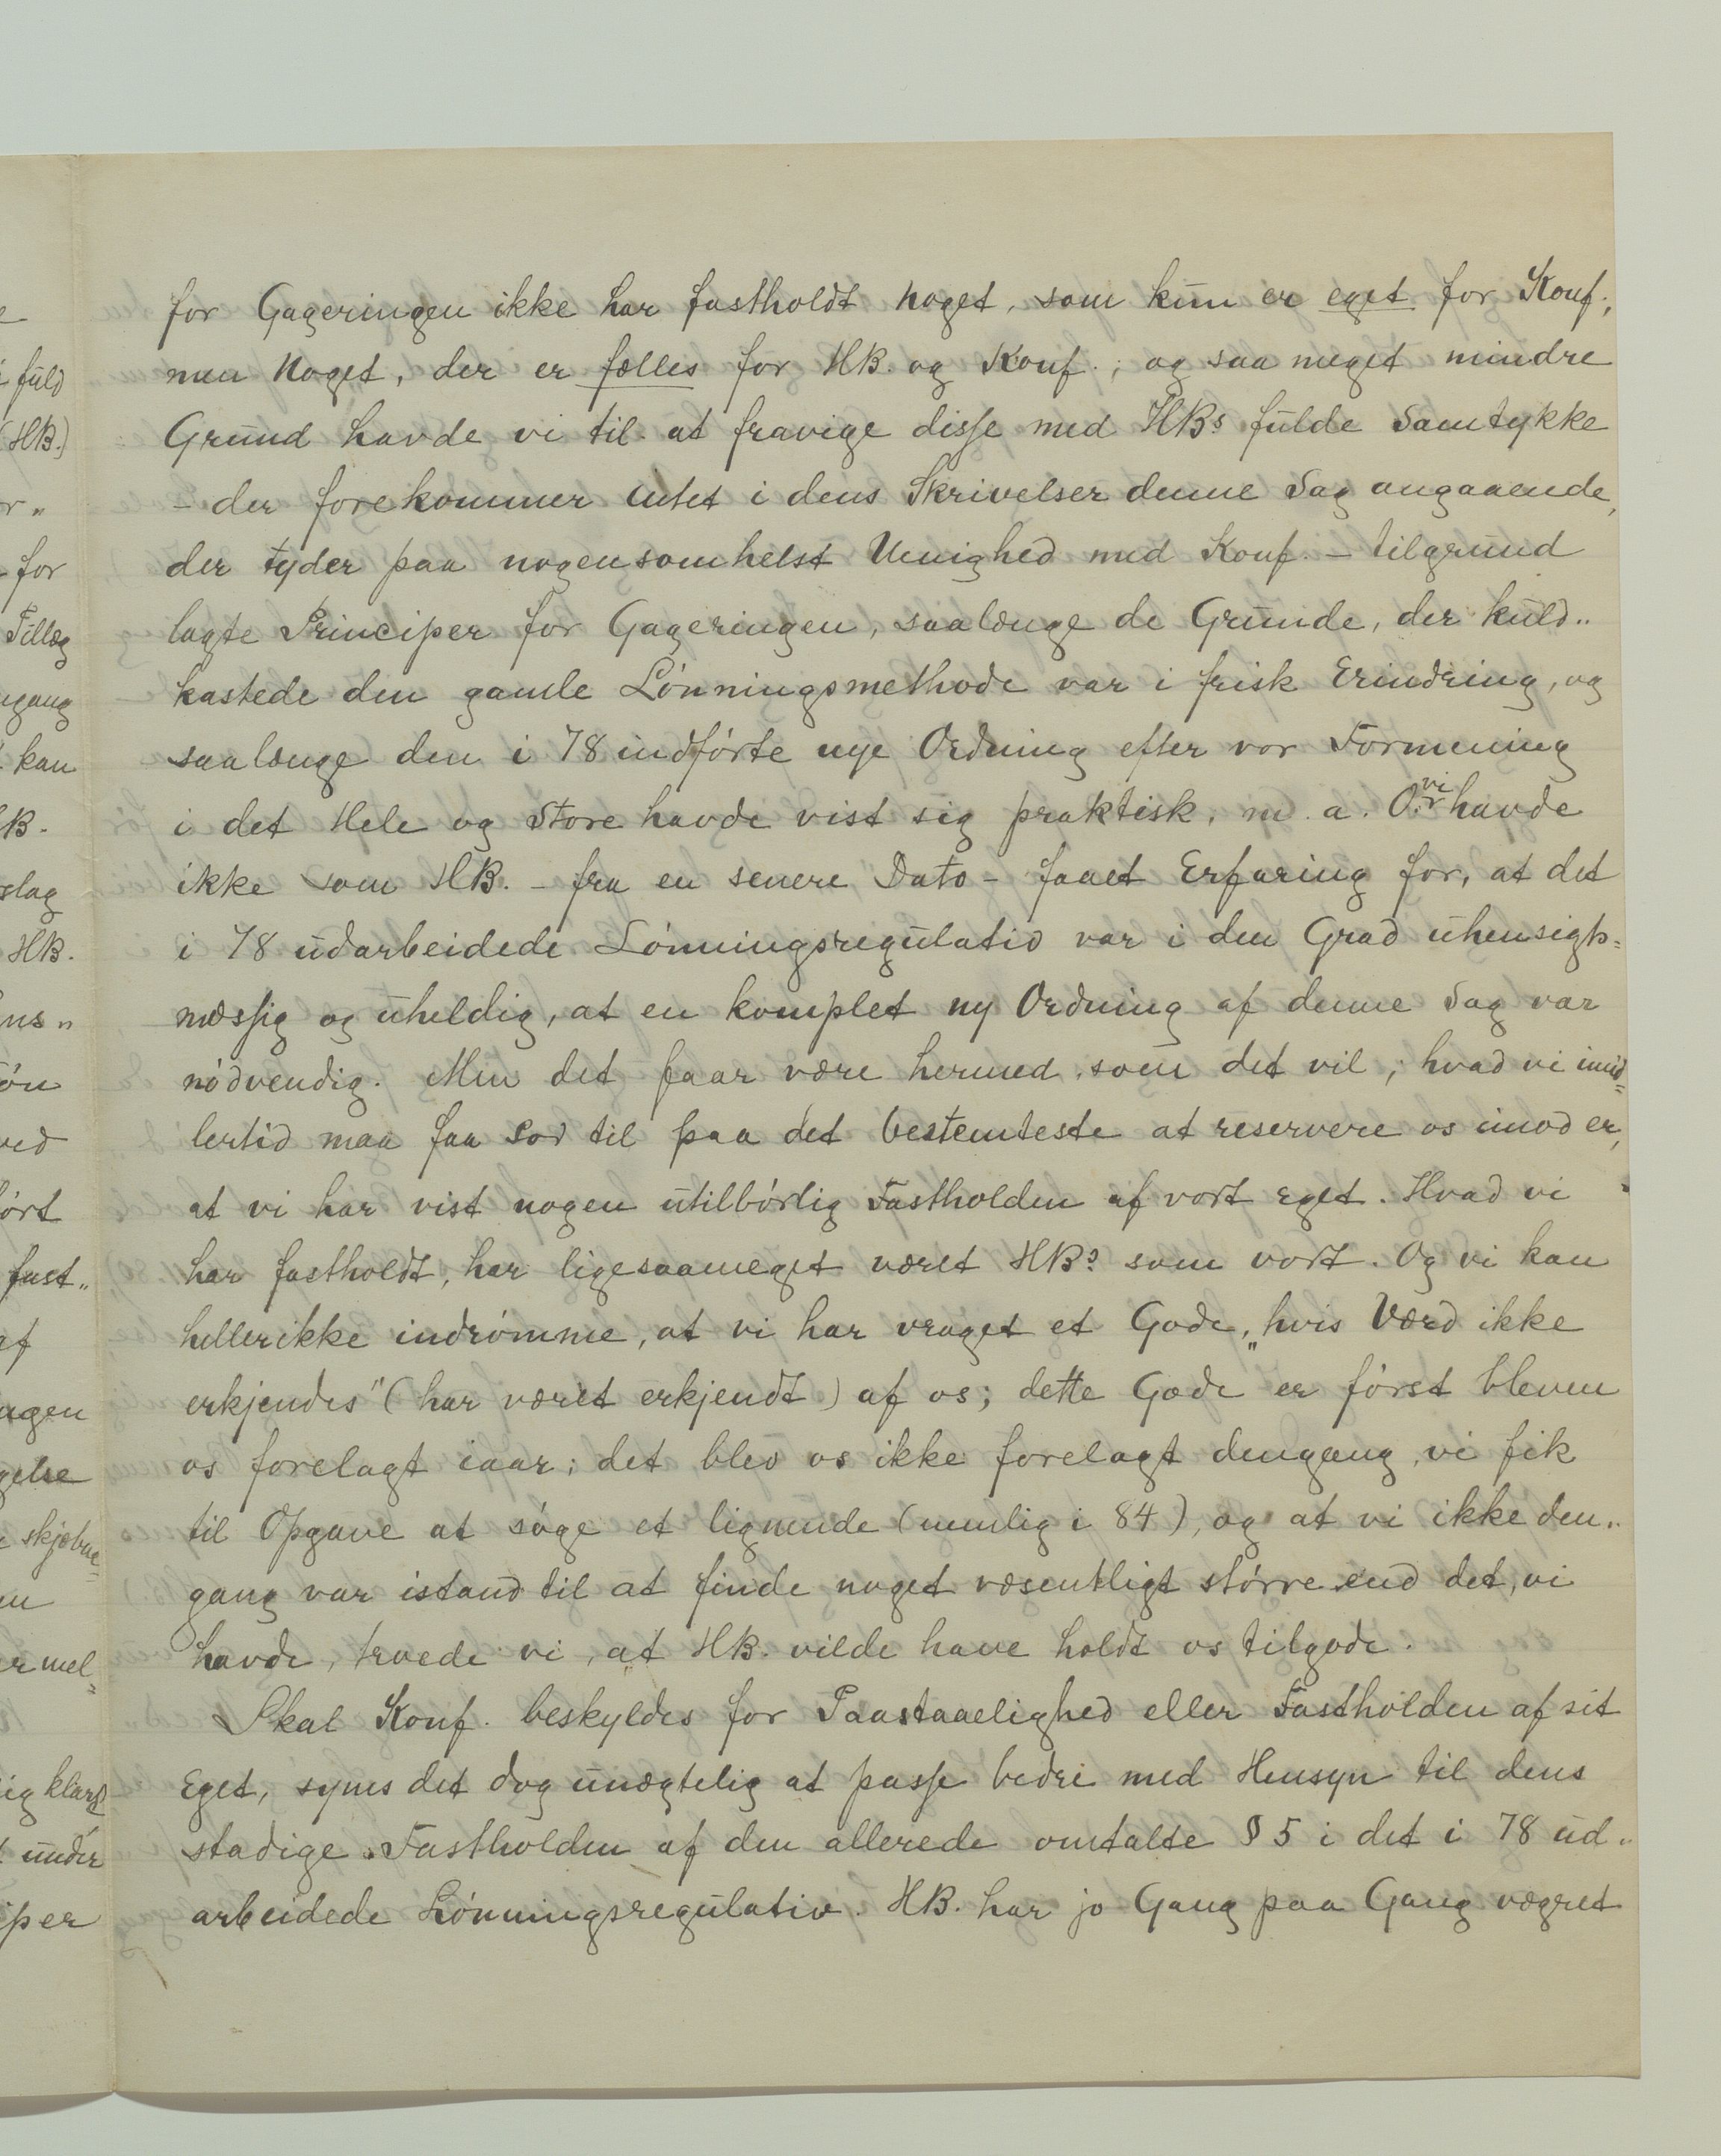 for Gageringen ikke har fastholdt noget, som kun er eget for Konf.,
men Noget, der er fælles for HB. og Konf.; og saa meget mindre
Grund havde vi til at fravige disse med HBs fulde Samtykke
– der forekommer intet i dens Skrivelser denne Sag angaaende,
der tyder paa nogensomhelst Uenighed med Konf. – tilgrund
lagte Principer for Gageringen, saalænge de Grunde, der kuld„
kastede den gamle Lønningsmethode var i frisk Erindring, og
saalænge den i 78 indførte nye Ordning efter vor Formening
i det Hele og Store havde vist sig praktisk, m. a. O. vi havde
ikke som HB. – fra en senere Dato – faaet Erfaring for, at det
i 78 udarbeidede Lønningsregulativ var i den Grad uhensigts=
mæssig og uheldig, at en komplet ny Ordning af denne Sag var
nødvendig. Men det faar være hermed, som det vil; hvad vi imid=
lertid maa faa Lov til paa det bestemteste at reservere os imod er,
at vi har vist nogen utilbørlig Fastholden af vort eget. Hvad vi
har fastholdt, har ligesaameget været HBs som vort. Og vi kan
hellerikke indrømme, at vi har vraget et Gode, „hvis Værd ikke
erkjendes" (har været erkjendt) af os; dette Gode er først bleven
os forelagt iaar; det blev os ikke forelagt dengang, vi fik
til Opgave at søge et lignende (nemlig i 84), og at vi ikke den„
gang var istand til at finde noget væsentligt større end det, vi
havde, troede vi, at HB. vilde have holdt os tilgode.
Skal Konf. beskyldes for Paastaaelighed eller Fastholden af sit
Eget, synes det dog unægtelig at passe bedre med Hensyn til dens
stadige Fastholden af den allerede omtalte § 5 i det i 78 ud„
arbeidede Lønningsregulativ. HB. har jo Gang paa Gang vægret